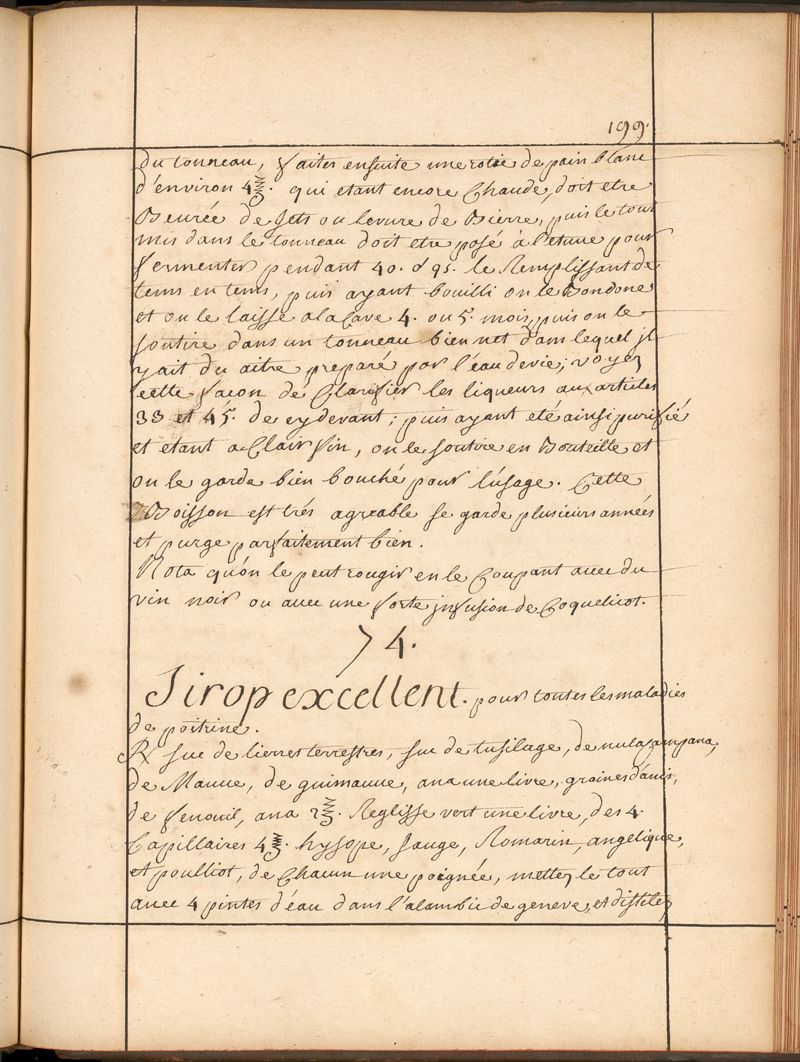 199.
du tonneau, faites ensuite une rotie de pain blanc
d'environ 4℥. qui etant encore Chaude, doit etre
Beurée de Jets ou levure de Bierre, puis le tout
mis dans le tonneau doit etre posé à l'etuve pour
fermenter pendant 40. le Remplissant de
tems en tems, puis ayant bouilli on le Bondone
et on le laisse a la Cave 4. ou 5. mois, puis on le
soutire dans un tonneau bien net dans lequel jl
yait du aitre preparé par l'eau de vie; voyez
cette façon de Clarifier les liqueurs aux articles
33 et 45. de cydevant; puis ayant eté ainsi purifié
et etant a Clair fin, on le soutire en Bouteille et
on le garde bien bouché pour l'usage. Cette
Boisson est trés agreable se garde plusieurs années
et purge parfaitement bien.
Nota qu'on le peut rougir en le Coupant avec du
vin noir ou avec une forte jnfusion de Coquelicot.
74.
Sirop excellent. pour toutes les maladies
de poitrine.
℞ suc de lierres terrestres, suc de tusilage, de nula campana,
de Mauue, de guimauue, ana une livre, graines d'anis,
de fenouil, ana 2℥. Reglisse vert une livre, des 4.
Capillaires 4℥. hysope, Sauge, Romarin, angelique,
et poulliot, de Chacun une poignée, mettez le tout
avec 4 pintes d'éau dans l'alambic de geneve, et distilez